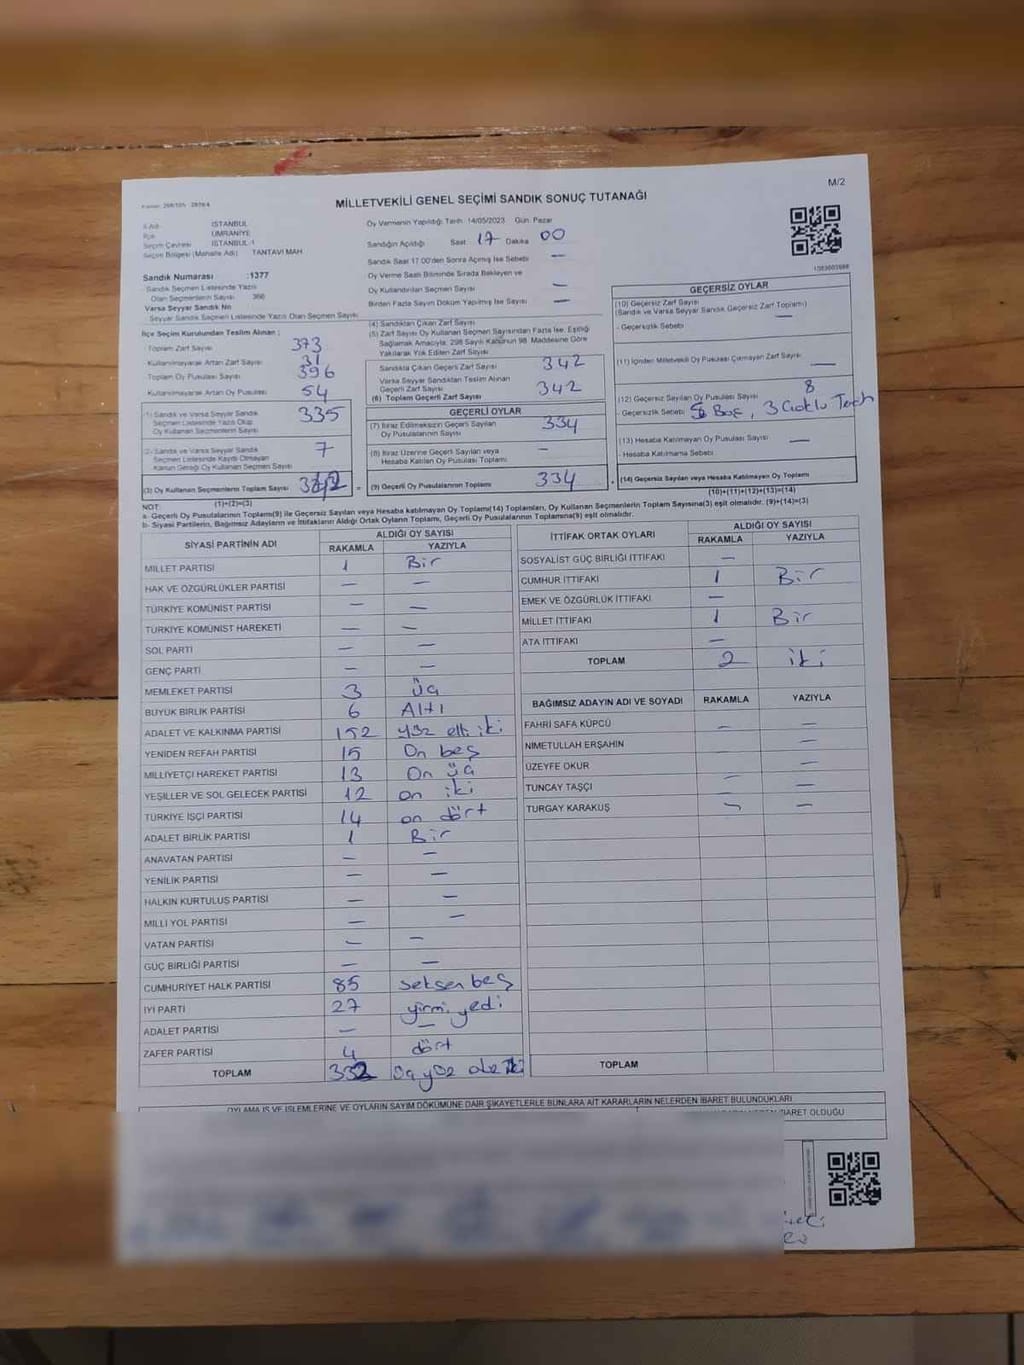 M/2
MİLLETVEKİLİ GENEL SEÇİMİ SANDIK SONUÇ TUTANAĞI
İl Adı : İSTANBUL
İlçe : ÜMRANİYE
Seçim Çevresi : İSTANBUL-1
Seçim Bölgesi (Mahalle Adı) : TANTAVİ MAH
Sandık Numarası :1377
- Sandık Seçmen Listesinde Yazılı
Olan Seçmenlerin Sayısı 366
Varsa Seyyar Sandık No
Seyyar Sandık Seçmen Listesinde Yazılı Olan Seçmen Sayısı
Oy Vermenin Yapıldığı Tarih: 14/05/2023 Gün: Pazar
Sandığın Açıldığı Saat 17 Dakika 00
Sandık Saat 17.00'den Sonra Açılmış İse Sebebi —
Oy Verme Saati Bitiminde Sırada Bekleyen ve
Oy Kullandırılan Seçmen Sayısı —
Birden Fazla Sayım Döküm Yapılmış İse Sayısı —
İlçe Seçim Kurulundan Teslim Alınan ;
- Toplam Zarf Sayısı 373
Kullanılmayarak Artan Zarf Sayısı 31
- Toplam Oy Pusulası Sayısı 396
Kullanılmayarak Artan Oy Pusulası 54
(1) Sandık ve Varsa Seyyar Sandık
Seçmen Listesinde Yazılı Olup
Oy Kullanan Seçmenlerin Sayısı 335
2- Sandık ve Varsa Seyyar Sandık
Seçmen Listesinde Kayıtlı Olmayan
Kanun Gereği Oy Kullanan Seçmen Sayısı 7
(3) Oy Kullanan Seçmenlerin Toplam Sayısı 342
(1)+(2)=(3)
(4) Sandıktan Çıkan Zarf Sayısı
(5) Zarf Sayısı Oy Kullanan Seçmen Sayısından Fazla İse, Eşitliği
Sağlamak Amacıyla, 298 Sayılı Kanunun 98. Maddesine Göre
Yakılarak Yok Edilen Zarf Sayısı
Sandıkta Çıkan Geçerli Zarf Sayısı 342
Varsa Seyyar Sandıktan Teslim Alınan
Geçerli Zarf Sayısı 342
(6) Toplam Geçerli Zarf Sayısı
GEÇERLİ OYLAR
(7) İtiraz Edilmeksizin Geçerli Sayılan
Oy Pusulalarının Sayısı 334
(8) İtiraz Üzerine Geçerli Sayılan veya
Hesaba Katılan Oy Pusulası Toplamı —
(9) Geçerli Oy Pusulalarının Toplamı 334
GEÇERSİZ OYLAR
(10) Geçersiz Zarf Sayısı
(Sandık ve Varsa Seyyar Sandık Geçersiz Zarf Toplamı) —
- Geçersizlik Sebebi
(11) İçinden Milletvekili Oy Pusulası Çıkmayan Zarf Sayısı —
(12) Geçersiz Sayılan Oy Pusulası Sayısı 8
- Geçersizlik Sebebi 5 Boş, 3 Çoklu Tercih
(13) Hesaba Katılmayan Oy Pusulası Sayısı —
- Hesaba Katılmama Sebebi
(14) Geçersiz Sayılan veya Hesaba Katılmayan Oy Toplamı
(10)+(11)+(12)+(13)=(14)
NOT:
a- Geçerli Oy Pusulalarının Toplamı(9) ile Geçersiz Sayılan veya Hesaba katılmayan Oy Toplamı(14) Toplamları, Oy Kullanan Seçmenlerin Toplam Sayısına(3) eşit olmalıdır. (9)+(14)=(3)
b- Siyasi Partilerin, Bağımsız Adayların ve İttifakların Aldığı Ortak Oyların Toplamı, Geçerli Oy Pusulalarının Toplamına(9) eşit olmalıdır.
SİYASİ PARTİNİN ADI ALDIĞI OY SAYISI
RAKAMLA YAZIYLA
MİLLET PARTİSİ 1 Bir
HAK VE ÖZGÜRLÜKLER PARTİSİ — —
TÜRKİYE KOMÜNİST PARTİSİ — —
TÜRKİYE KOMÜNİST HAREKETİ — —
SOL PARTİ — —
GENÇ PARTİ — —
MEMLEKET PARTİSİ 3 üç
BÜYÜK BİRLİK PARTİSİ 6 Altı
ADALET VE KALKINMA PARTİSİ 152 yüz elli iki
YENİDEN REFAH PARTİSİ 15 On beş
MİLLİYETÇİ HAREKET PARTİSİ 13 On üç
YEŞİLLER VE SOL GELECEK PARTİSİ 12 on iki
TÜRKİYE İŞÇİ PARTİSİ 14 on dört
ADALET BİRLİK PARTİSİ 1 Bir
ANAVATAN PARTİSİ — —
YENİLİK PARTİSİ — —
HALKIN KURTULUŞ PARTİSİ — —
MİLLİ YOL PARTİSİ — —
VATAN PARTİSİ — —
GÜÇ BİRLİĞİ PARTİSİ — —
CUMHURİYET HALK PARTİSİ 85 seksen beş
İYİ PARTİ 27 yirmi yedi
ADALET PARTİSİ — —
ZAFER PARTİSİ 4 dört
TOPLAM 332
İTTİFAK ORTAK OYLARI ALDIĞI OY SAYISI
RAKAMLA YAZIYLA
SOSYALİST GÜÇ BİRLİĞİ İTTİFAKI —
CUMHUR İTTİFAKI 1 Bir
EMEK VE ÖZGÜRLÜK İTTİFAKI —
MİLLET İTTİFAKI 1 Bir
ATA İTTİFAKI —
TOPLAM 2 iki
BAĞIMSIZ ADAYIN ADI VE SOYADI RAKAMLA YAZIYLA
FAHRİ SAFA KÜPCÜ — —
NİMETULLAH ERŞAHİN —
ÜZEYFE OKUR —
TUNCAY TAŞÇI — —
TURGAY KARAKUŞ — —
TOPLAM
OYLAMA İŞ VE İŞLEMLERİNE VE OYLARIN SAYIM DÖKÜMÜNE DAİR ŞİKAYETLERLE BUNLARA AİT KARARLARIN NELERDEN İBARET BULUNDUKLARI
İBARET OLDUĞU